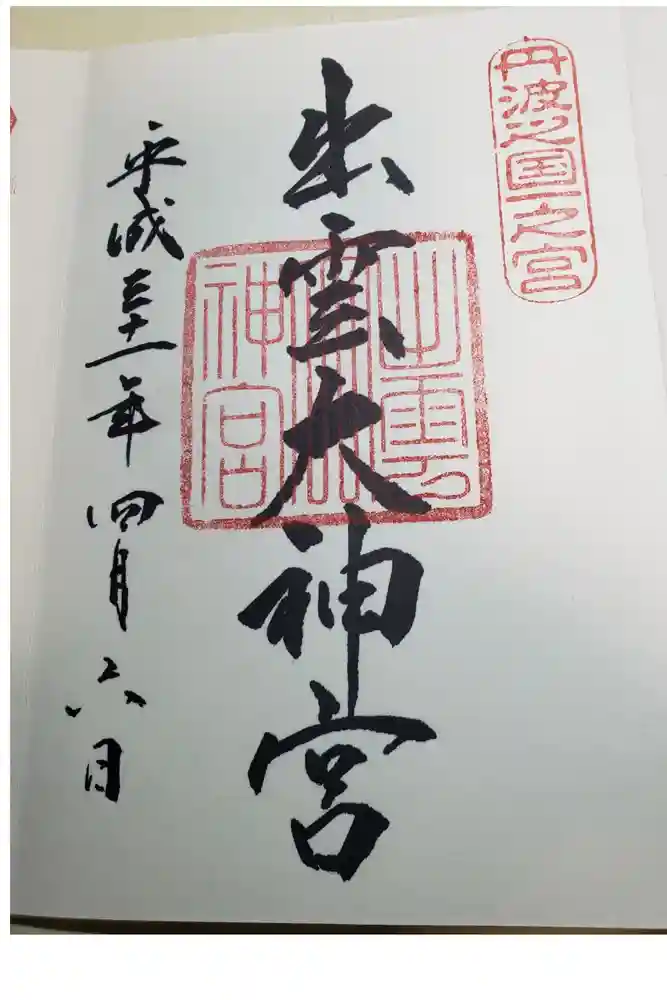 丹波之国一之宮
出雲大神宮
出雲大神宮
平成三十一年四月六日